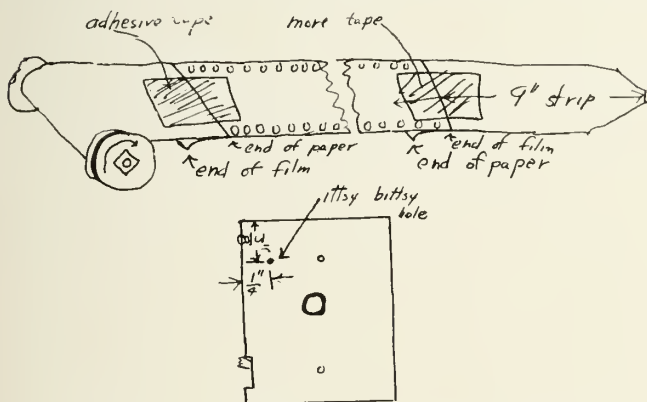 adhesive tape
more tape
9" strip
end of paper
end of film
end of film
end of paper
ittsy bittsy
hole
1/4"